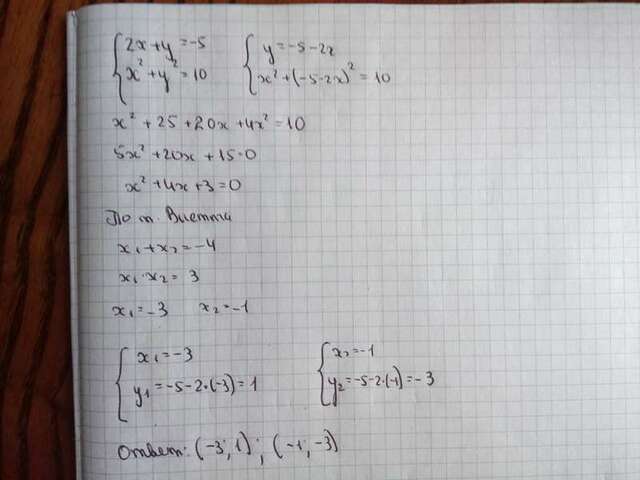 { 2x+y=-5 { y=-5-2x
{ x²+y²=10 { x²+(-5-2x)²=10
x²+25+20x+4x²=10
5x²+20x+15=0
x²+4x+3=0
По т. Виетта
x₁+x₂=-4
x₁·x₂=3
x₁=-3 x₂=-1
{ x₁=-3 { x₂=-1
{ y₁=-5-2·(-3)=1 { y₂=-5-2·(-1)=-3
Ответ: (-3;1); (-1;-3)